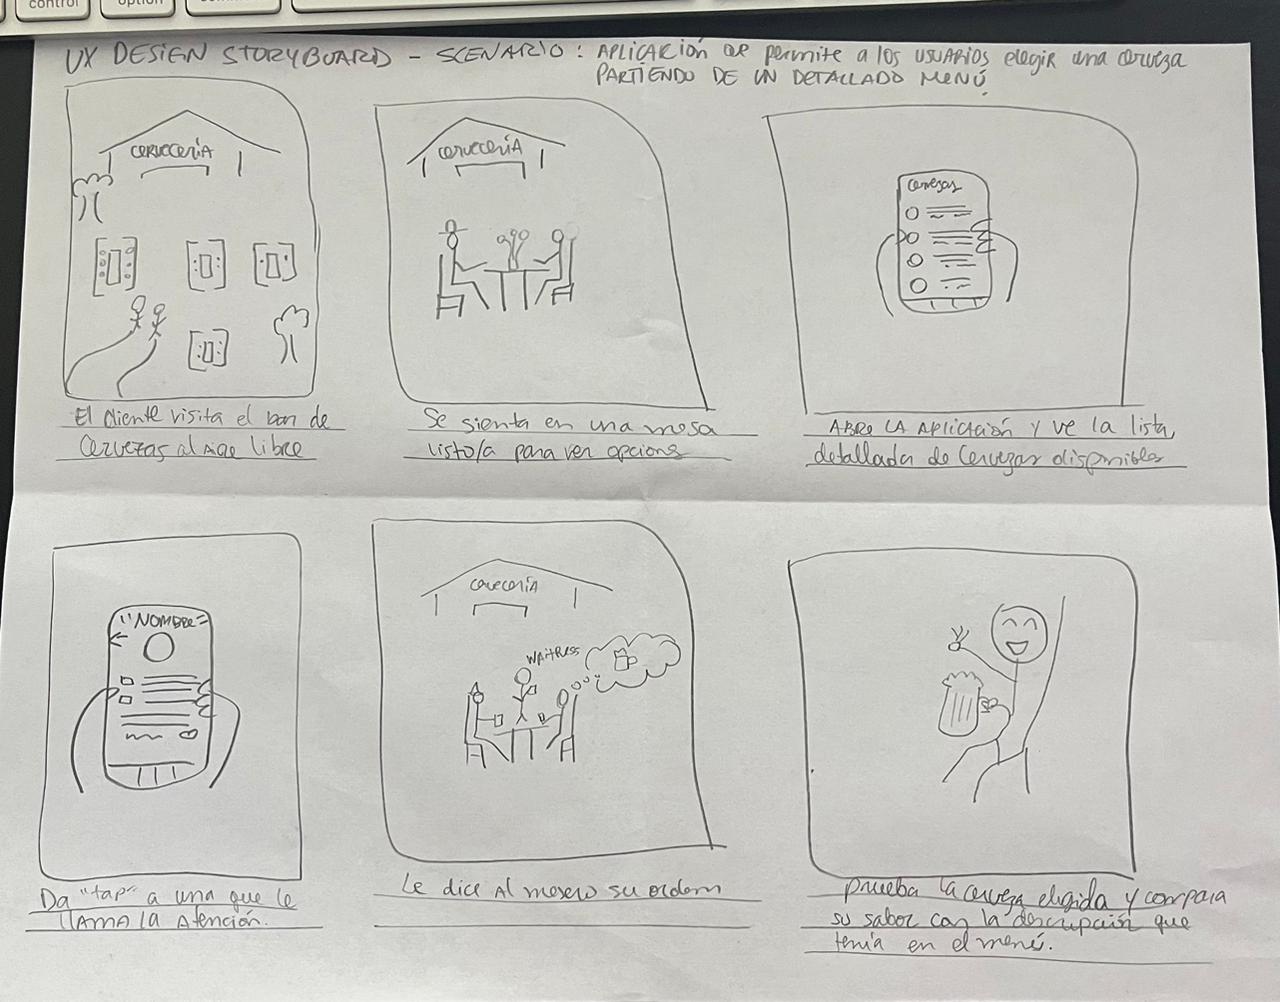 control
option
UX DESIGN STORYBOARD - SCENARIO: APLICACIÓN QUE permite a los usuarios elegir una cerveza
PARTIENDO DE UN DETALLADO MENÚ.
CERVECERÍA
El cliente visita el bar de
cervezas al aire libre
CERVECERÍA
Se sienta en una mesa
listo/a para ver opciones
Cervezas
ABRE LA APLICACIÓN y ve la lista
detallada de cervezas disponibles
"NOMBRE"
Da "tap" a una que le
llama la atención.
CERVECERÍA
WAITRESS
Le dice al mesero su orden
Prueba la cerveza elegida y compara
su sabor con la descripción que
tenía en el menú.